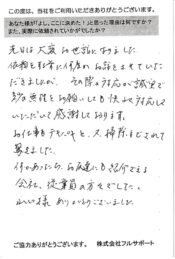 この度は、当社をご利用いただきありがとうございます。
あなた様が「よし、ここに決めた！」と思った理由は何ですか？
また、実際に依頼されていかがでしたか？
先日は大変お世話になりました。
依頼を
お話をさせていただ
だきましたが、その際の対応が誠実で
お願いしても快よく対応して
いただいて感謝しております。
お仕事もテキパキと、又、掃除までされて
驚きました。
何かあったら、お友達にも紹介できる
会社、従業員の方々でした。
ありがとうございました。
ご協力ありがとうございます。 株式会社フルサポート